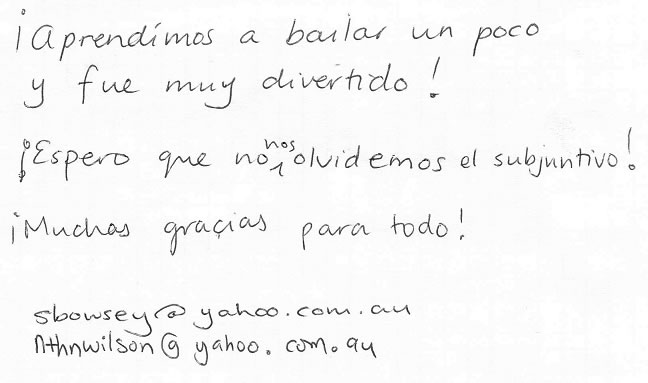 ¡Aprendímos a bailar un poco
y fue muy divertido!
¡Espero que no nos olvidemos el subjuntivo!
¡Muchas gracias para todo!
sbowsey@yahoo.com.au
nthnwilson@yahoo.com.au